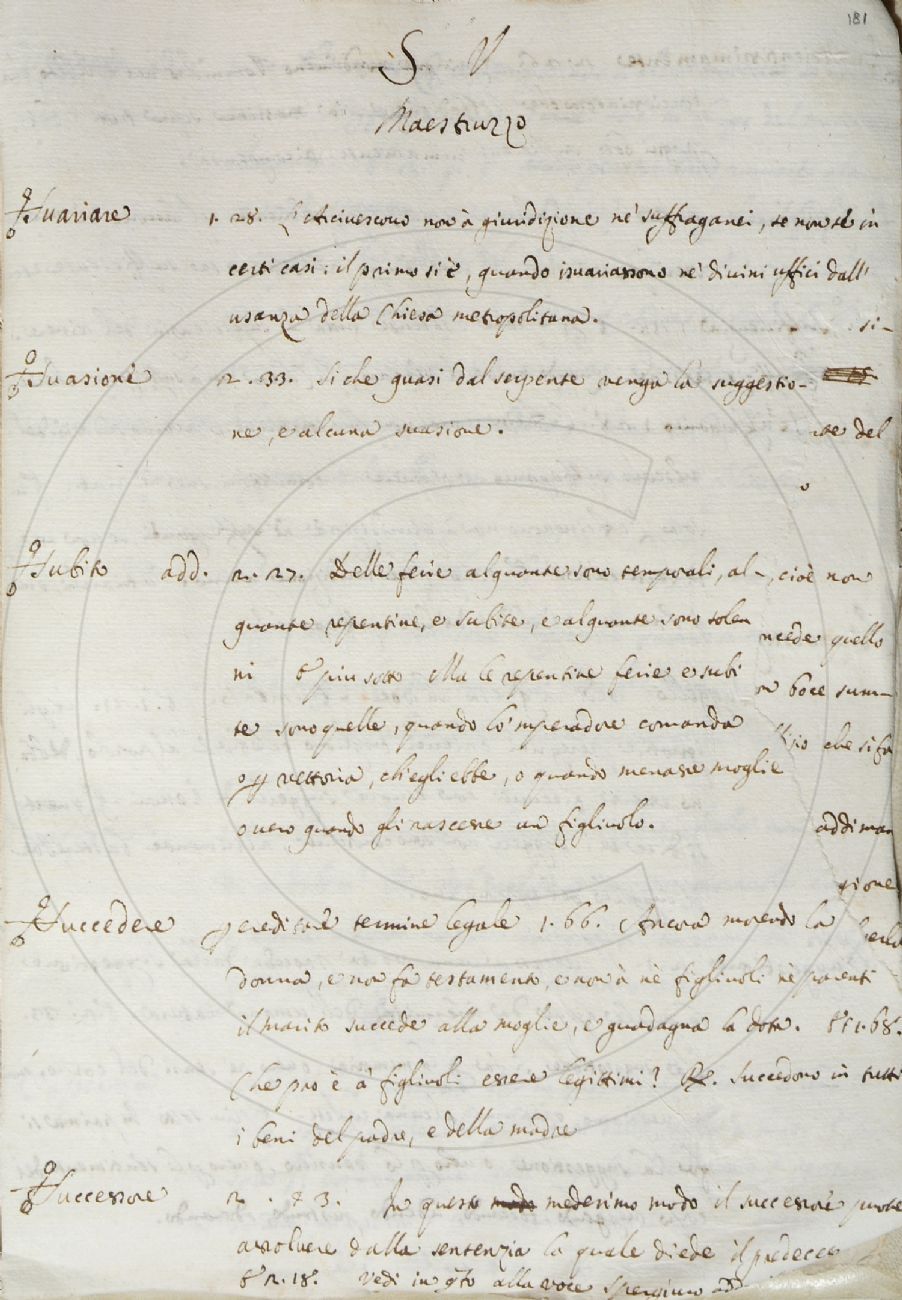 181
S V
Maestruzzo
Suariare 1. 28. L'Arcivescovo non à giuridizione ne' suffraganei, se non se in
certi casi: il primo si è, quando isvariassono ne' divini uffici dall'
usanza della Chiesa metropolitana.
si-
Suasione 2. 33. Si che quasi dal serpente venga la suggestio-
ne, e alcuna suasione.
del
Subito add. 2. 27. Delle ferie alquante sono temporali, al-
, cioè non
quante repentine, e subite, e alquante sono solen
quello
ni E più sotto Ma le repentine ferie e subi
boce summ
te sono quelle, quando lo 'mperadore comanda
che si fa
o p vettoria, ch'egli ebbe, o quando menasse moglie
overo quando gli nascesse un figliuolo.
addiman
gione
Succedere p ereditare termine legale 1. 66. Ancora morendo la
donna, e non fa testamento, e non à nè figliuoli nè parenti
il marito succede alla moglie, e guadagna la dota. E 1. 68.
Che pro è a' figliuoli essere legittimi? R. Succedono in tutti
i beni del padre, e della madre
Successore 2. 43. In questo modo medesimo modo il successore puote
assolvere dalla sentenzia la quale diede il predeces
E 2. 18. Vedi in qto alla voce